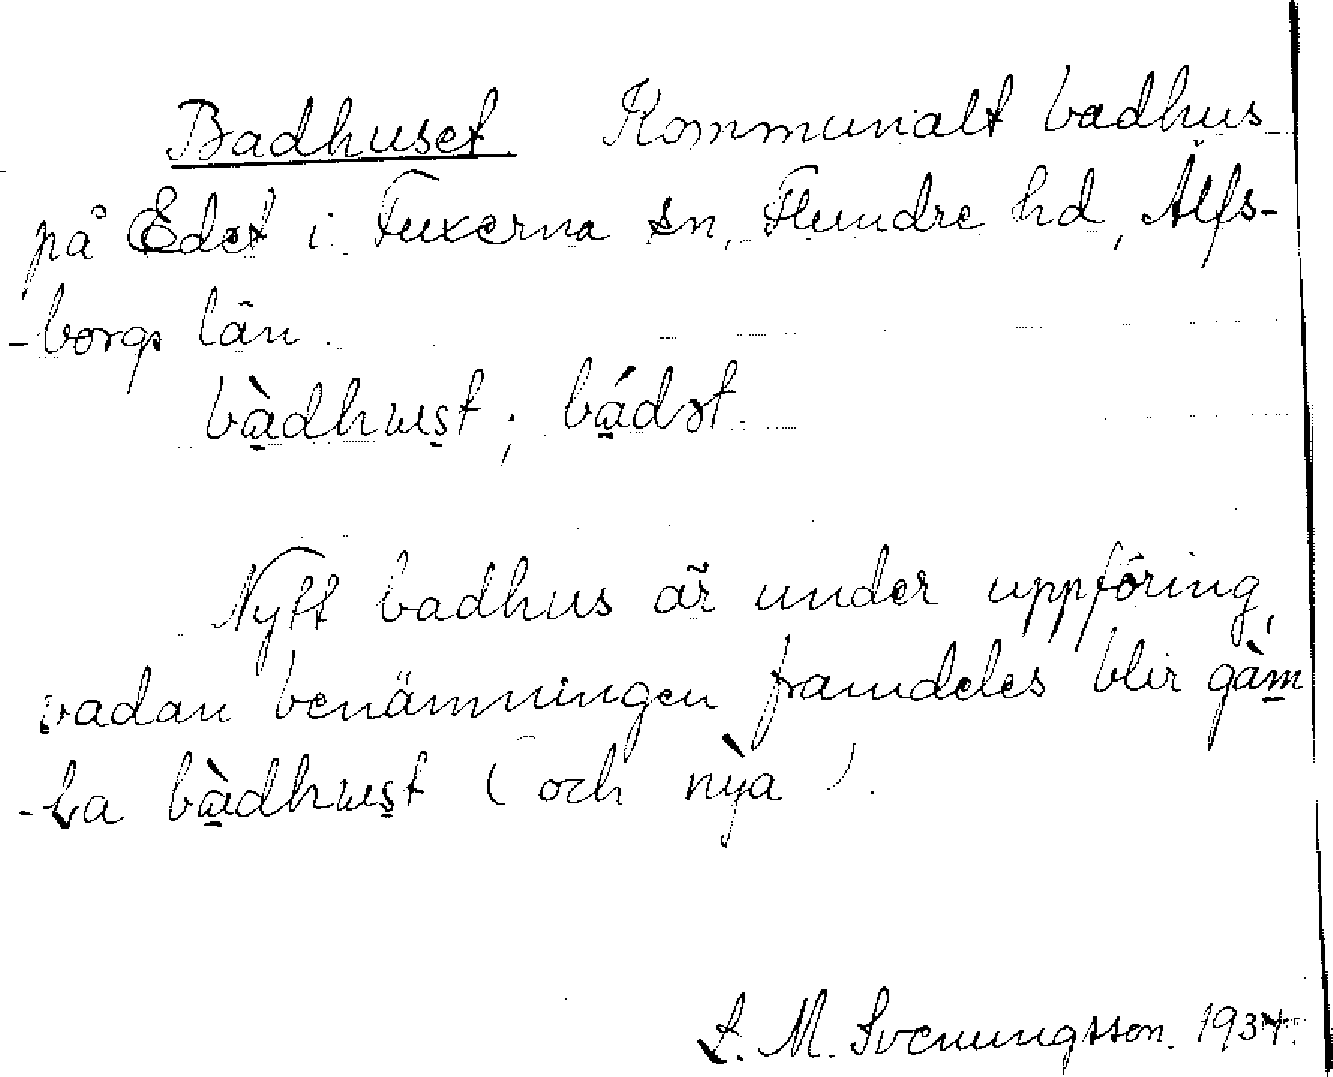 Badhuset. Kommunalt badhus
på Edet i Fuxerna sn, Flundre hd, Älfs-
-borgs län.
bà̱dhus̱t; bá̱dst.
Nytt badhus är under uppföring,
vadan benämningen framdeles blir gàm̱
-La bà̱dhus̱t (och nỳa).
L. M. Svenungsson. 1934.